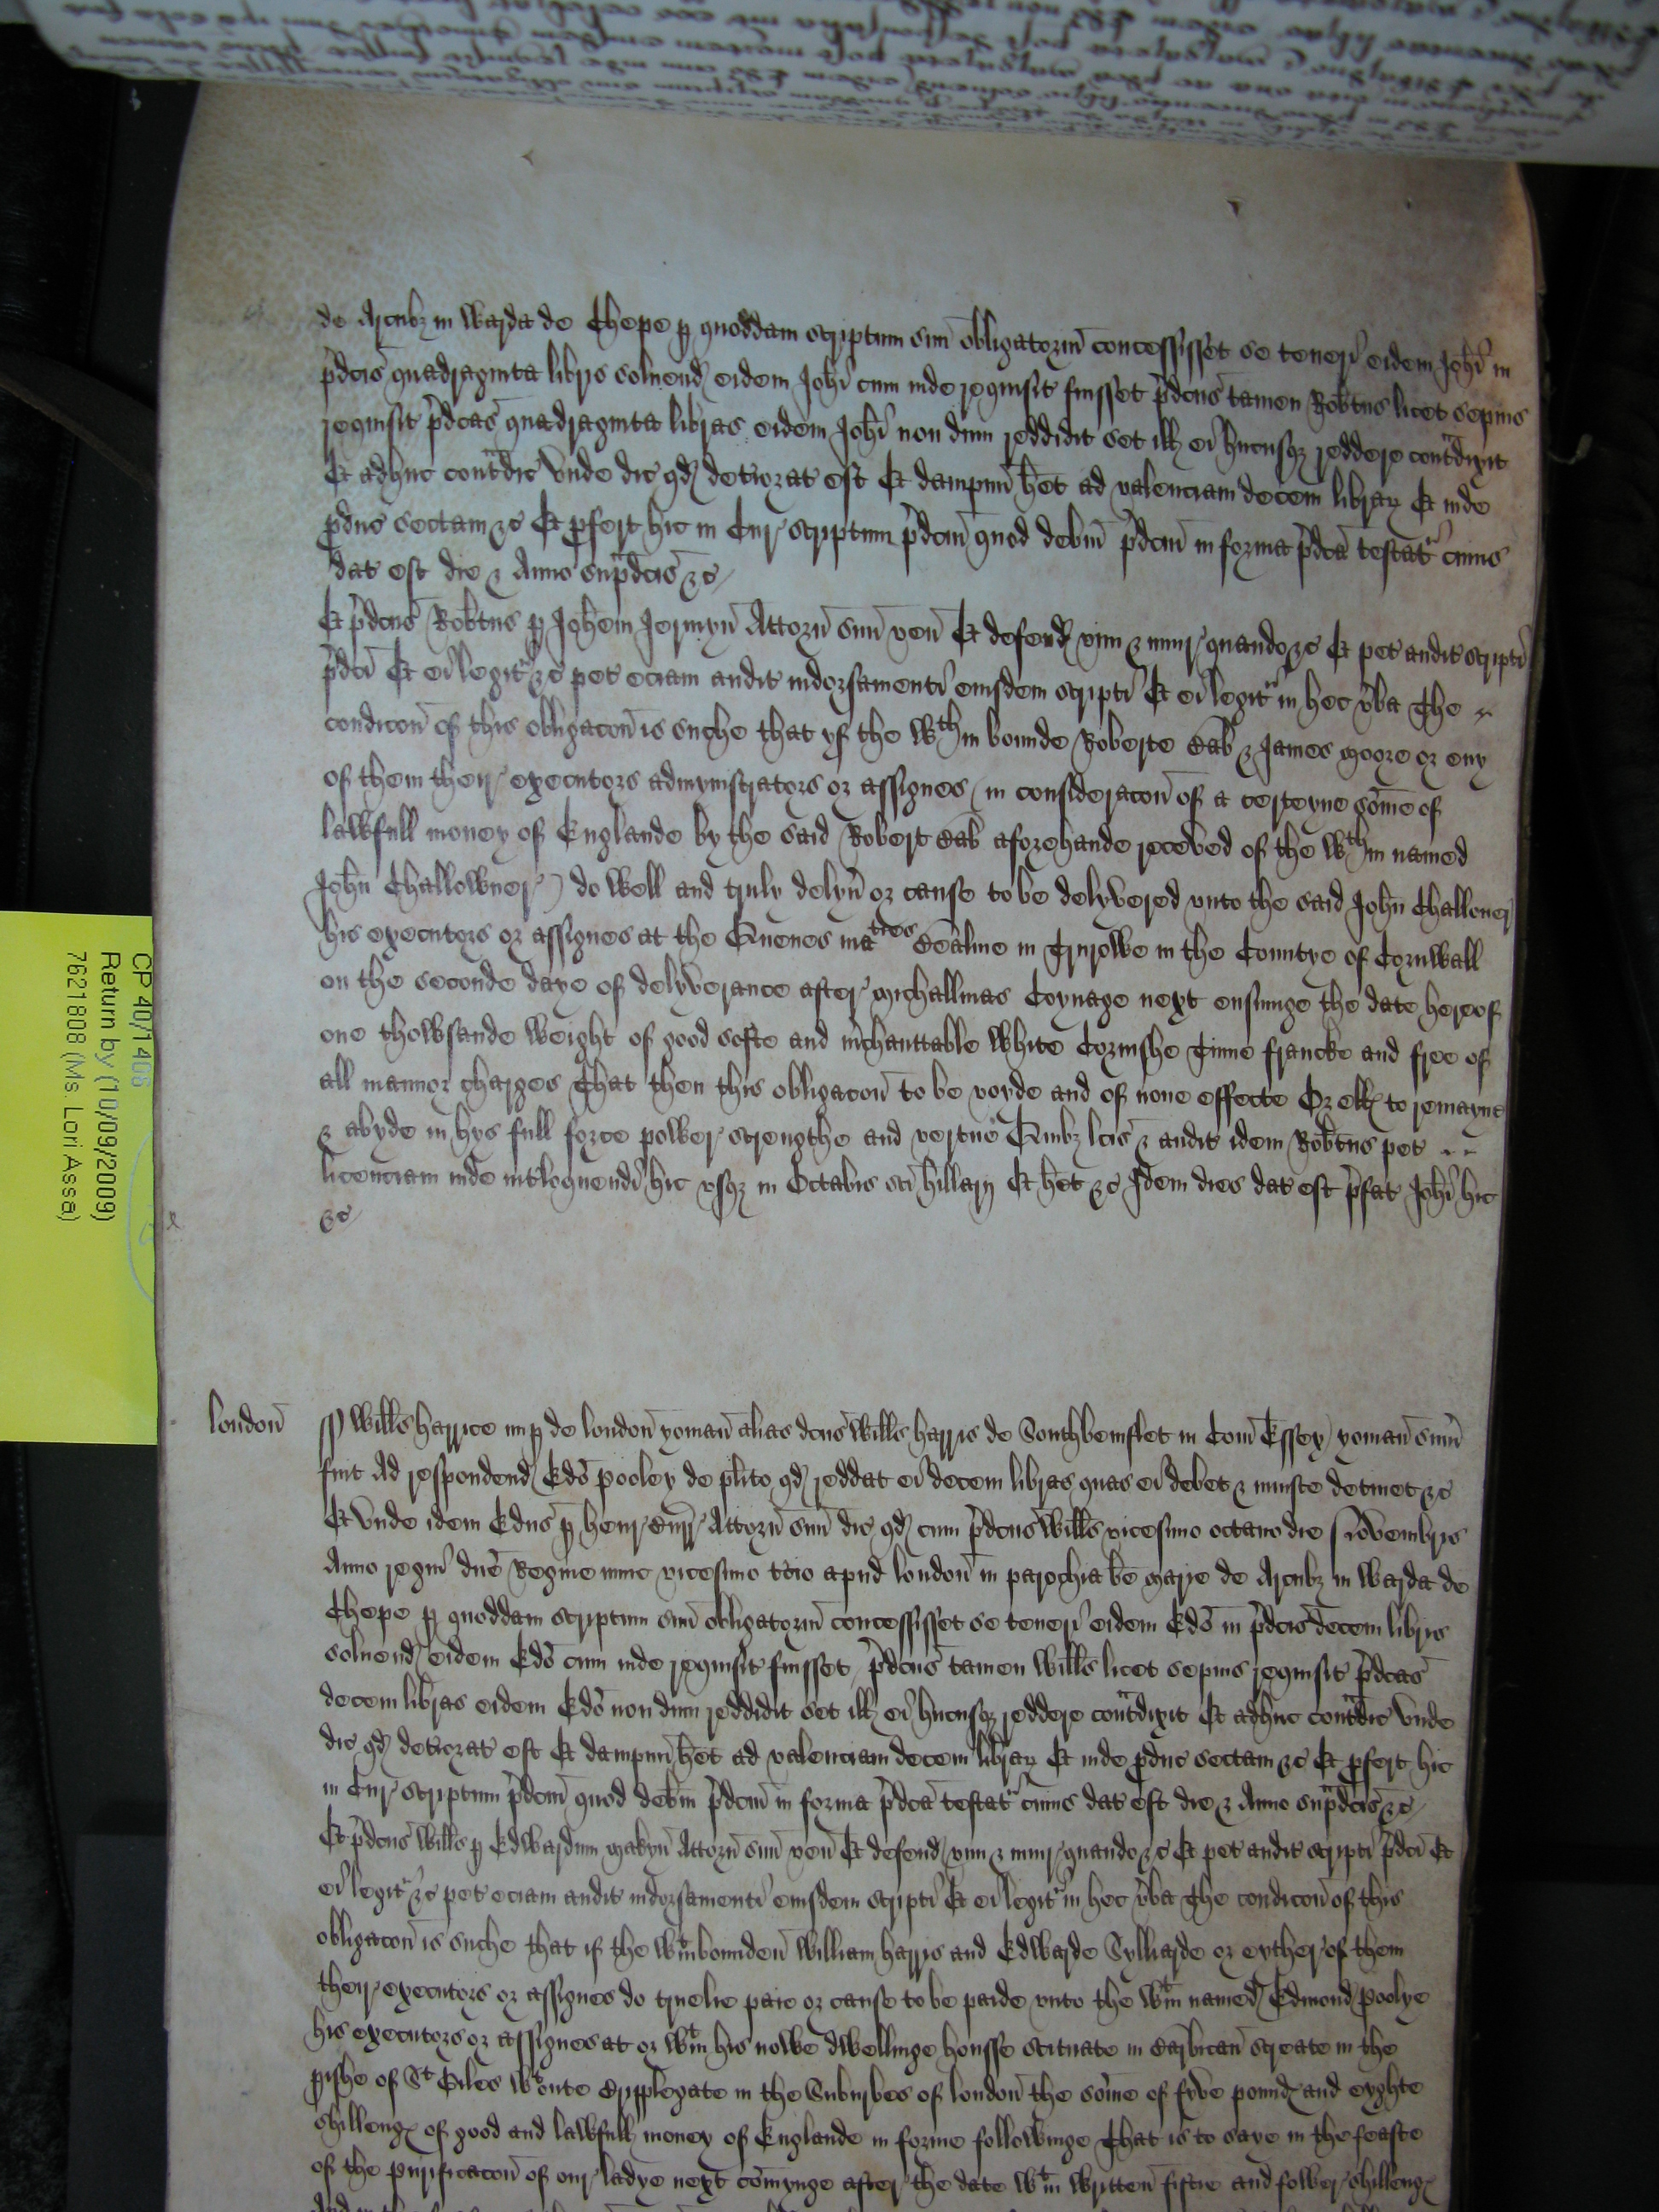 de Arcubz in warda de Chepe p quoddam scriptum suu obligatoriu concessisset se teneri eidem Johi in
pdcis quadraginta libris solvend eidem Johi cum inde requisit fuisset pdcus tamen Robtus licet sepius
requisit pdcas quadraginta libras eidem Johi non dum reddidit set ill ei hucusqz reddere contdixit
Et adhuc contdic unde dic qd deteriorat est Et dampnu het ad valenciam decem librar Et inde
pduc sectam &c Et pfert hic in Cur scriptum pdcm quod debm pdcm in forma pdca testat cuius
dat est die & Anno supdcis &c
Et pdcus Robtus p Johem Jermyn Attorn suu ven Et defend vim & iniur quando &c Et pet audit scripti
pdci Et ei legit &c pet eciam audit indorsamenti eiusdem scripti Et ei legit in hec vba The
condicon of this obligacon is suche that yf the wthin bounde Roberte & James Moore or eny
of them their executors admynistrators or assignes (in consideracon of a certeyne some of
lawfull money of Englande by the said Robert aforehande receved of the wthin named
John Challowner) do well and truly delyv or cause to be delyvered unto the said John Challoner
his executors or assignes at the Quenes maties in Trurowe in the Countye of Cornwall
on the seconde daye of delyverance after Michallmas Coynage next ensuinge the date hereof
one thowsande weight of good softe and mchanttable white Cornishe Tinne francke and free of
all mannor charges That then this obligacon to be voyde and of none effecte Or ells to remayne
& abyde in hys full force power strengthe and vertue Quibz lcis & audit idem Robtus pet
licenciam inde intloquendi hic usqz in Octabis sci hillarij Et het &c Idem dies dat est pfat Johi hic
&c
london
ss Wills harrice nup de london yoman alias dcus Wills harris de Southbemflet in Com Essex yoman sum
fuit Ad respondend Edo Pooley de plito qd reddat ei decem libras quas ei debet & iniuste detinet &c
Et unde idem Edus p henr Attorn suu dic qd cum pdcus Wills vicesimo octavo die Novembris
Anno regni dne Regine nunc vicesimo tcio apud london in parochia be Marie de Arcubz in warda de
Chepe p quoddam scriptum suu obligatoriu concessisset se teneri eidem Edo in pdcis decem libris
solvend eidem Edo cum inde requisit fuisset pdcus tamen Wills licet sepius requisit pdcas
decem libras eidem Edo non dum reddidit set ill ei hucusqz reddere contdixit Et adhuc contdic unde
dic qd deteriorat est Et dampnu het ad valenciam decem librar Et inde pduc sectam &c Et pfert hic
in Cur scriptum pdcm quod debm pdcm in forma pdca testat cuius dat est die & Anno supdcis &c
Et pdcus Wills p Edwardum Makyn Attorn suu ven Et defend vim & iniur quando &c Et pet audit scripti pdci Et
ei legit &c pet eciam audit indorsamenti eiusdem scripti Et ei legit in hec vba The condicon of this
obligacon is suche that if the wtinbounden William harris and Edwarde Sylliarde or eyther of them
their executors or assignes do truelie paie or cause to be paide unto the wtin named Edmond Poolye
his executors or assignes at or wtin his nowe dwellinge housse scituate in Barbican streate in the
pishe of St Giles wtoute Cripplegate in the Suburbes of london the some of fyve pounds and eyghte
shillengs of good and lawfull money of Englande in forme followinge That is to saye in the feaste
of the purificacon of our ladye next comynge after the date wtin written fiftie and fower shillengs
CP 40/1406
Return by (10/09/2009)
7621808 (Ms. Lori Assa)